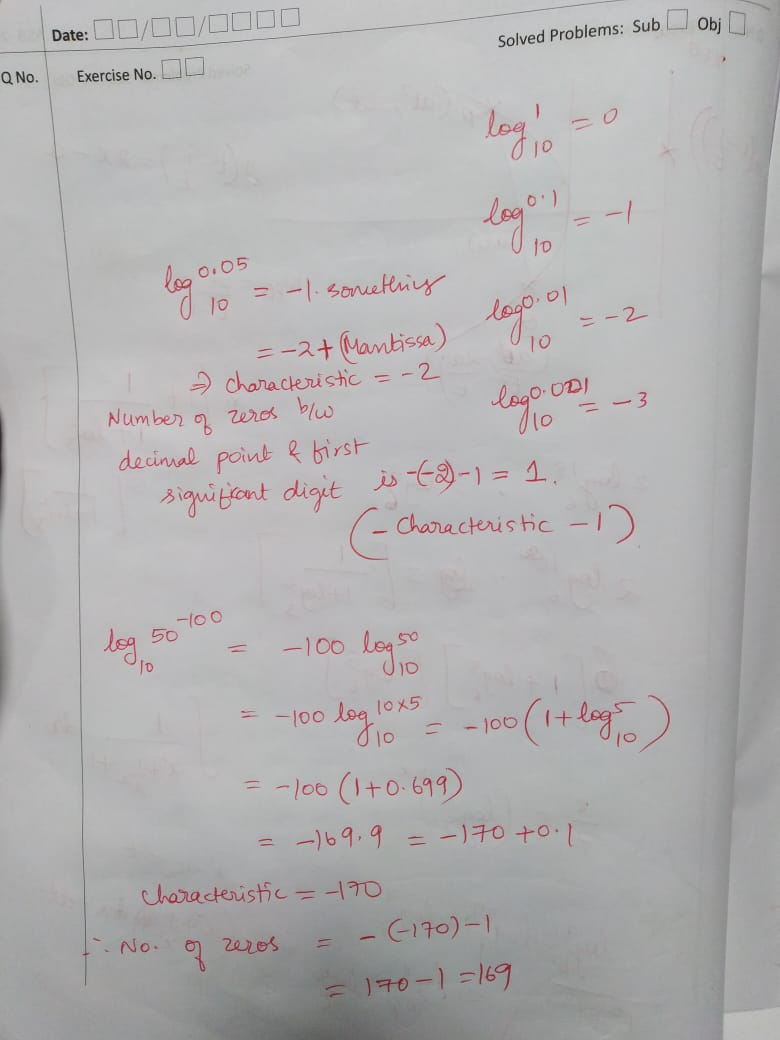 Date: □□/□□/□□□□
Solved Problems: Sub □ Obj □
Q No.
Exercise No. □□
log₁₀ 1 = 0
log₁₀ 0.1 = -1
log₁₀ 0.05 = -1. something
log₁₀ 0.01 = -2
= -2 + (Mantissa)
⇒ characteristic = -2
log₁₀ 0.001 = -3
Number of zeros b/w
decimal point & first
significant digit is -(-2)-1 = 1.
(- Characteristic - 1)
log₁₀ 50⁻¹⁰⁰ = -100 log₁₀ 50
= -100 log₁₀ 10×5 = -100 (1 + log₁₀ 5)
= -100 (1+0.699)
= -169.9 = -170 + 0.1
Characteristic = -170
∴ No. of zeros = - (-170) - 1
= 170 - 1 = 169